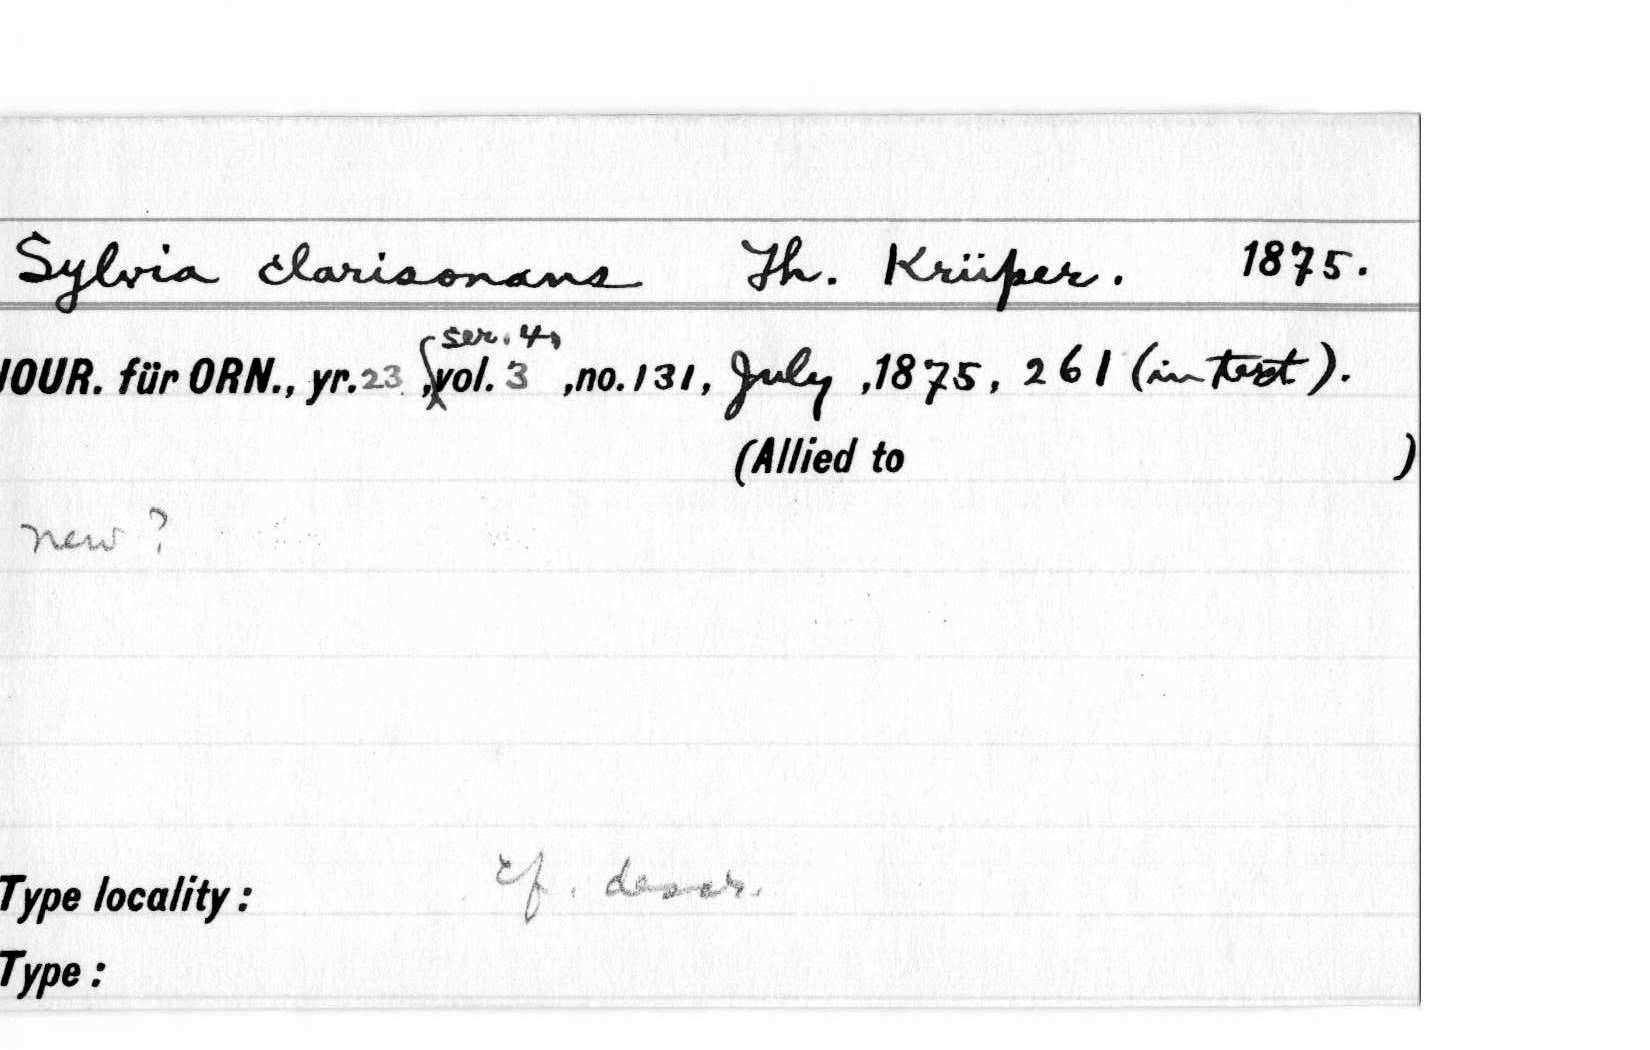 Sylvia clarisonans Th. Krüper. 1875.
ser. 4,
JOUR. für ORN., yr. 23, vol. 3, no. 131, July, 1875, 261 (in text).
(Allied to )
new?
cf. descr.
Type locality:
Type: